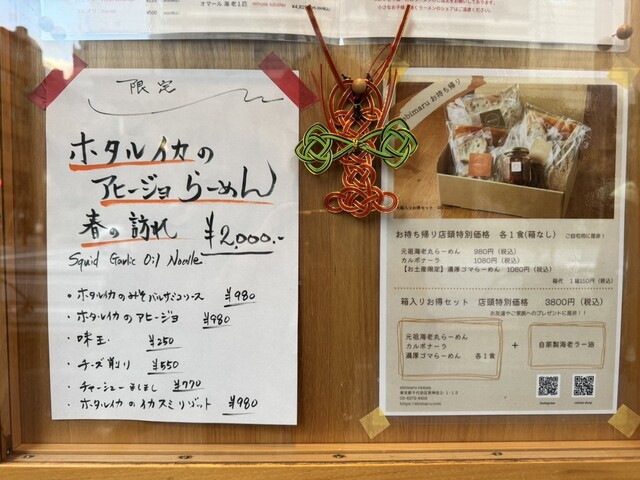 オマール海老1匹
限定
ホタルイカの
アヒージョらーめん
春の訪れ ¥2,000.-
Squid Garlic Oil Noodle
・ホタルイカのみそバルサミコソース ¥980
・ホタルイカのアヒージョ ¥980
・味玉 ¥250
・チーズ削り ¥550
・チャーシューましまし ¥770
・ホタルイカのイカスミリゾット ¥980
ebimaru お持ち帰り
お持ち帰り店頭特別価格 各1食(箱なし) ご自宅用に是非!
元祖海老丸らーめん 980円(税込)
カルボナーラ 1080円(税込)
【お土産限定】濃厚ゴマらーめん 1080円(税込)
箱代 1箱110円(税込)
箱入りお得セット 店頭特別価格 3800円(税込)
お友達やご家族へのプレゼントに是非!!
元祖海老丸らーめん
カルボナーラ
濃厚ゴマらーめん 各1食
+
自家製海老ラー油